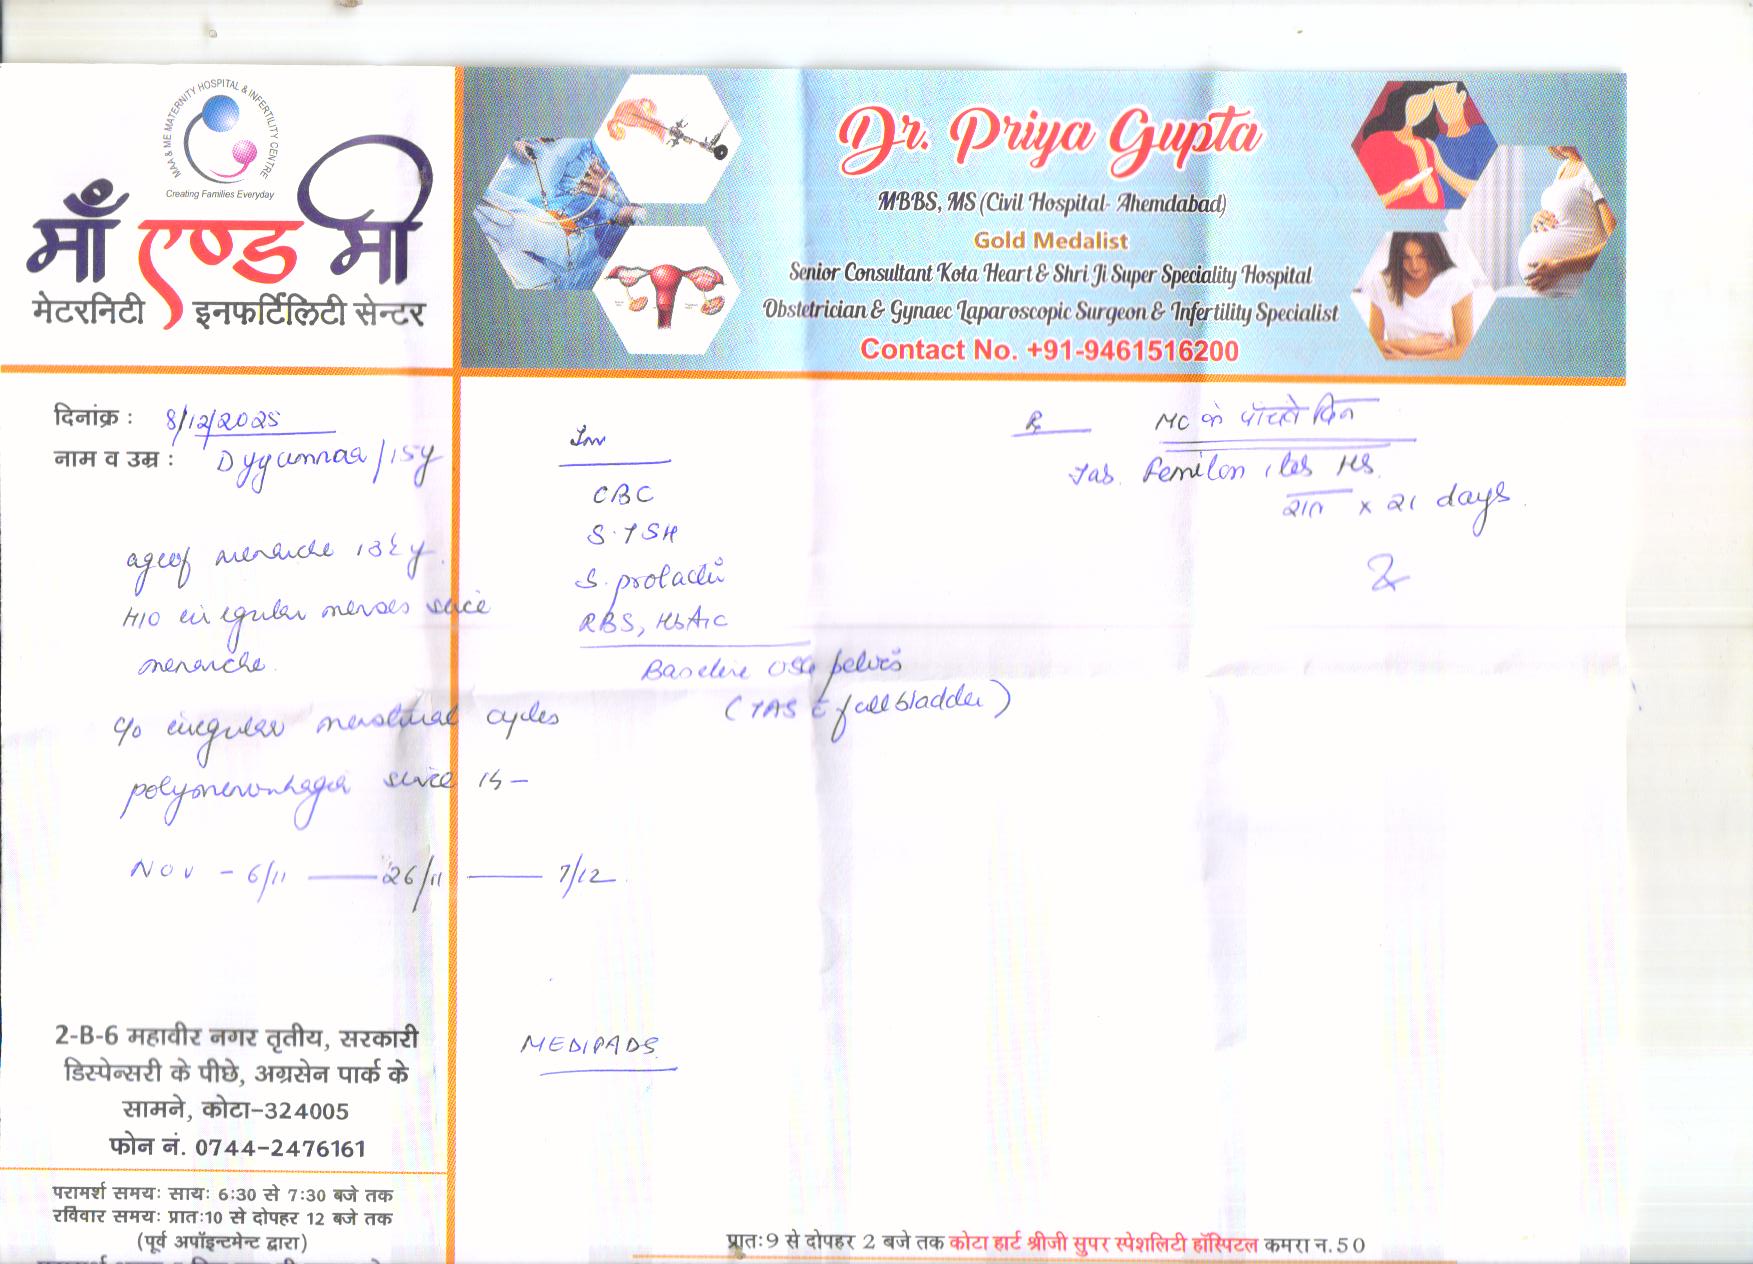 MAA & ME MATERNITY HOSPITAL & INFERTILITY CENTRE
Creating Families Everyday
माँ एण्ड मी
मेटरनिटी इनफर्टिलिटी सेन्टर
Dr. Priya Gupta
MBBS, MS (Civil Hospital- Ahemdabad)
Gold Medalist
Senior Consultant Kota Heart & Shri Ji Super Speciality Hospital
Obstetrician & Gynaec Laparoscopic Surgeon & Infertility Specialist
Contact No. +91-9461516200
दिनांक : 8/12/2025
नाम व उम्र : /15y
age of menarche 13½ y.
H/O irregular menses since
menarche.
c/o irregular menstrual cycles
since
NOV - 6/11 —— 26/11 —— 7/12
Inv
CBC
S. TSH
S. prolactin
RBS, HbA1c
Baseline USG pelvis
(TAS c full bladder)
MEDIPADS
Rx
MC के पांचवे दिन
Tab. Femilon HS
रात x 21 days
2-B-6 महावीर नगर तृतीय, सरकारी
डिस्पेन्सरी के पीछे, अग्रसेन पार्क के
सामने, कोटा-324005
फोन नं. 0744-2476161
परामर्श समय: साय: 6:30 से 7:30 बजे तक
रविवार समय: प्रात:10 से दोपहर 12 बजे तक
(पूर्व अपॉइन्टमेन्ट द्वारा)
प्रात:9 से दोपहर 2 बजे तक कोटा हार्ट श्रीजी सुपर स्पेशलिटी हॉस्पिटल कमरा न.50